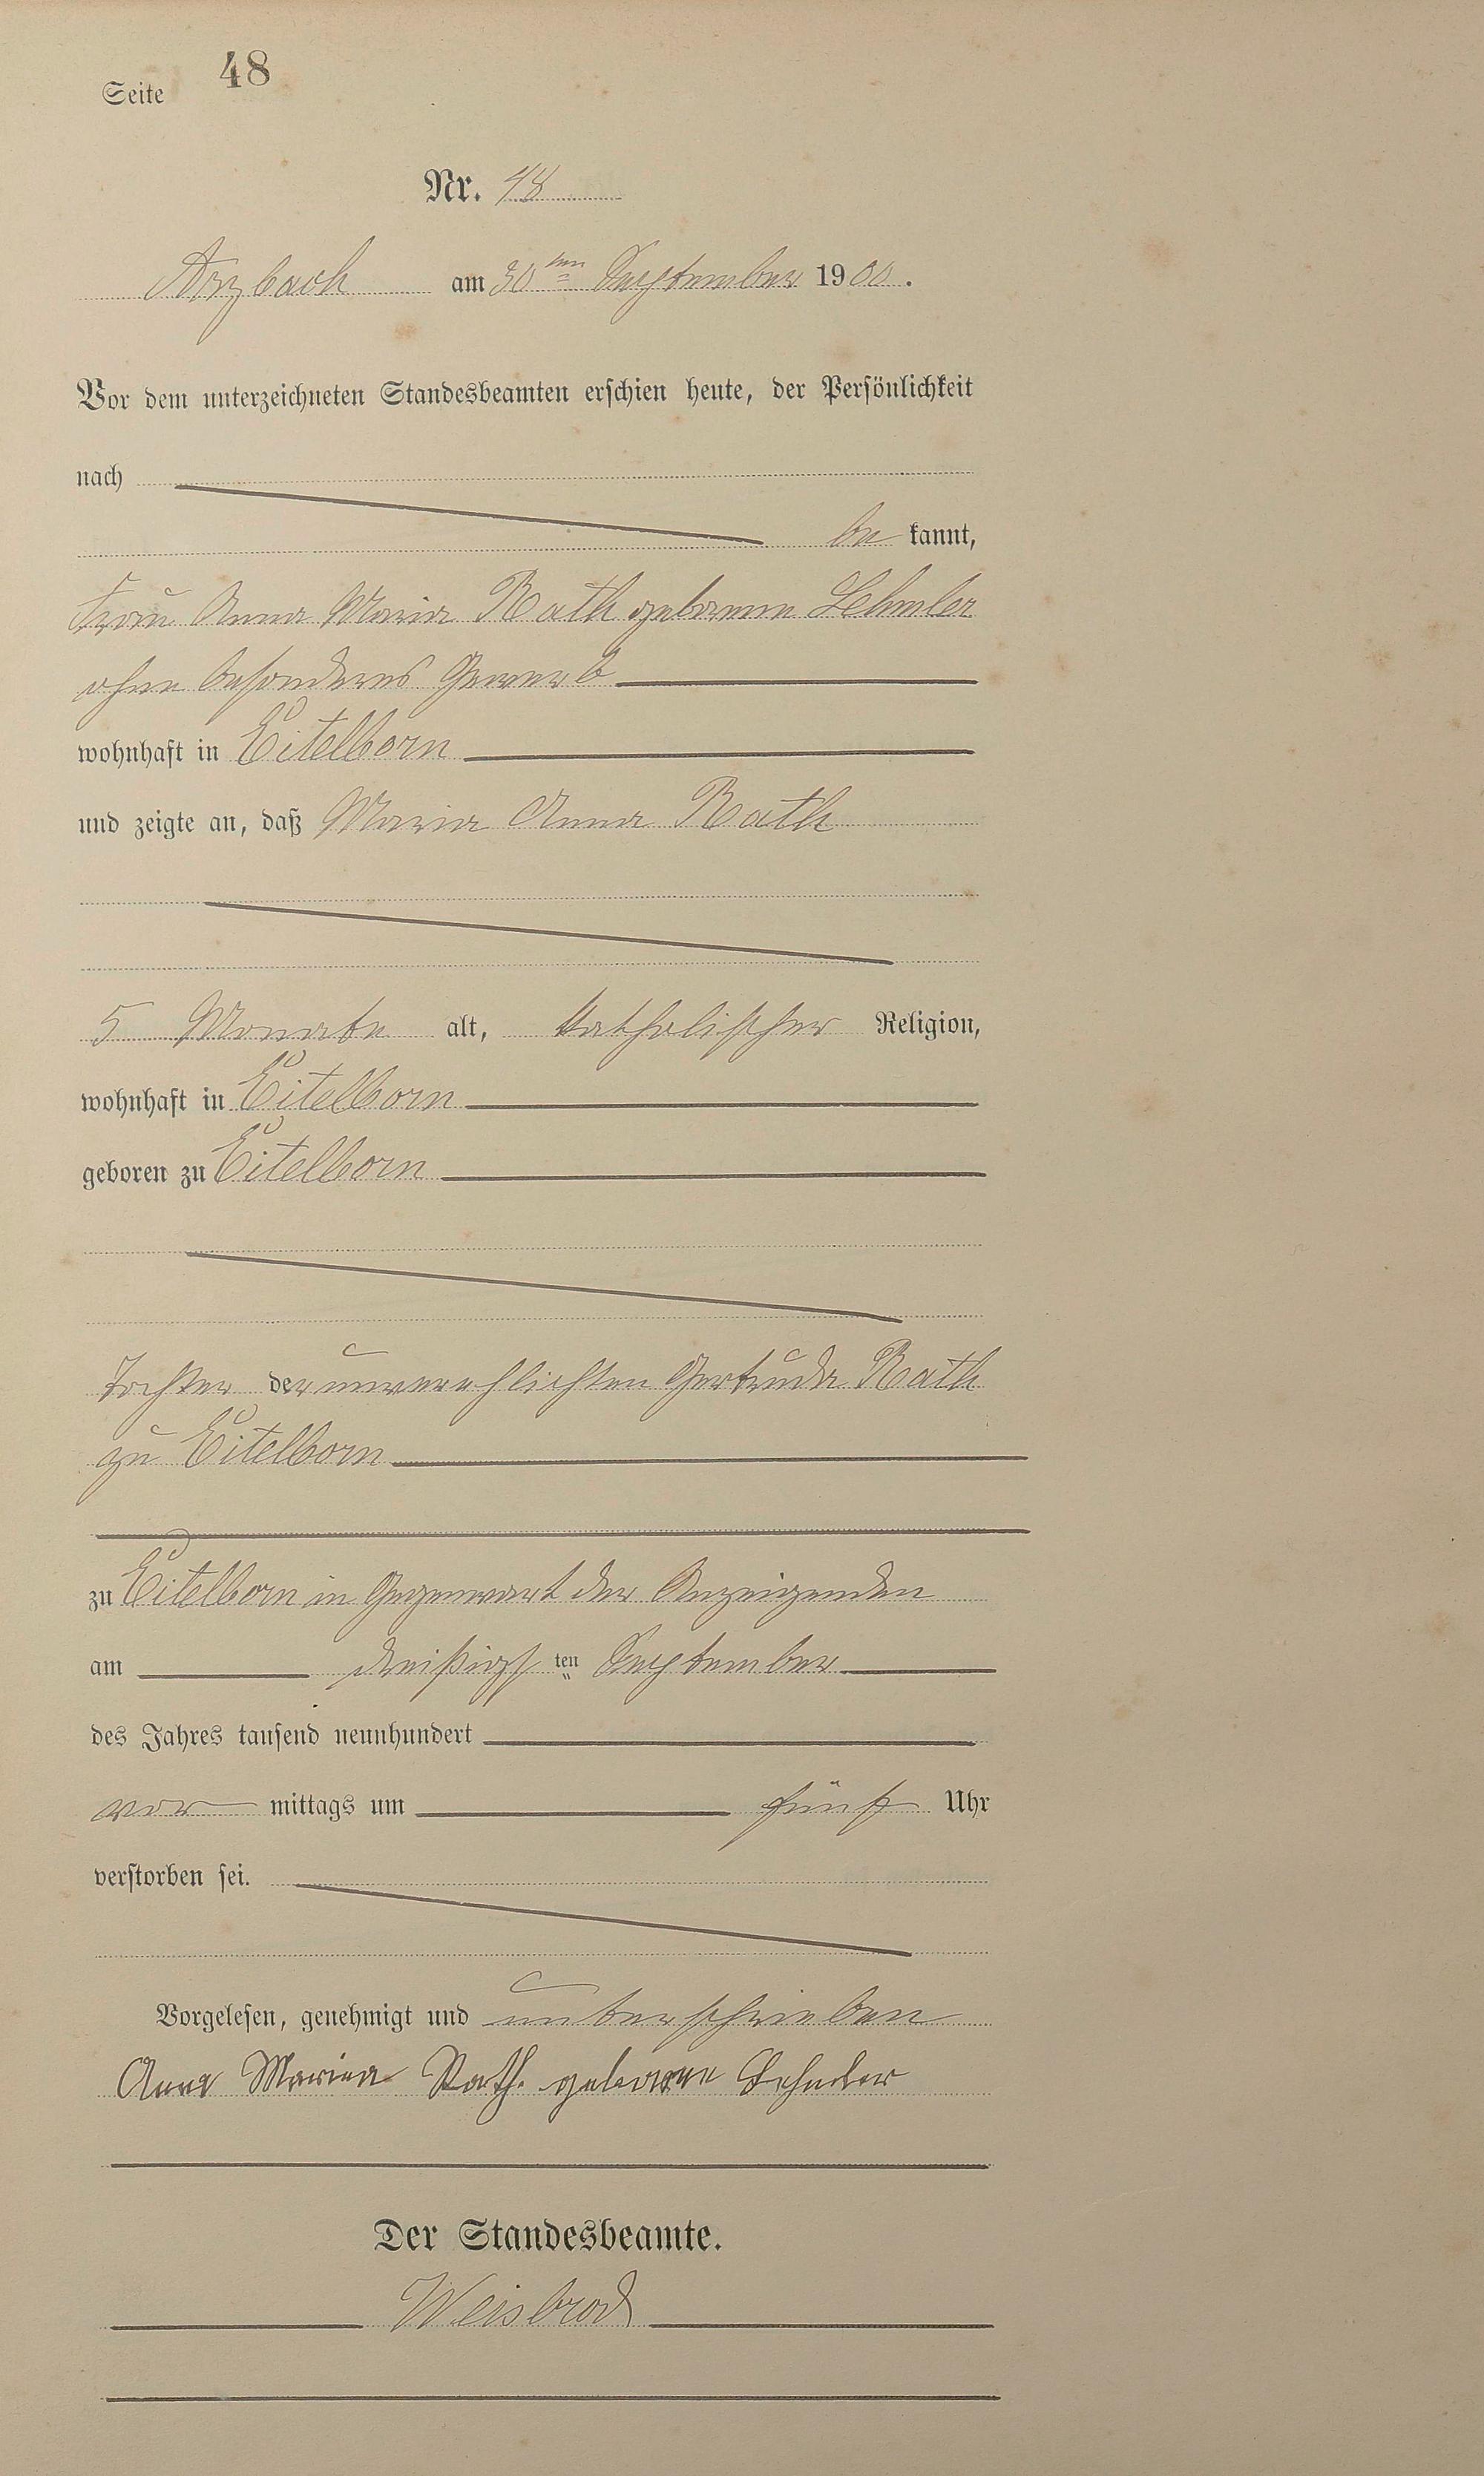 Seite 48
Nr. 48
Arzbach am 30ten September 1900.
Vor dem unterzeichneten Standesbeamten erschien heute, der Persönlichkeit
nach
be kannt,
Frau Anna Maria Rath geborene Lehmler
ohne besonderes Gewerb
wohnhaft in Eitelborn
und zeigte an, daß Maria Anna Rath
5 Monate alt, katholischer Religion,
wohnhaft in Eitelborn
geboren zu Eitelborn
Tochter der unverehlichten Gertruda Rath
zu Eitelborn
zu Eitelborn in Gegenwart der Anzeigenden
am dreißigsten September
des Jahres tausend neunhundert
vor mittags um fünf Uhr
verstorben sei.
Vorgelesen, genehmigt und unterschrieben
Anna Maria Rath geborene
Der Standesbeamte.
Weisbrod